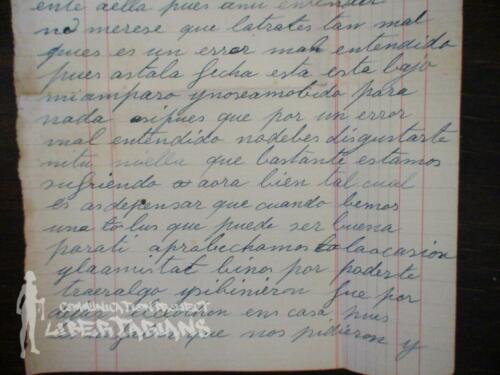 ente aella pues amí entender
no merese que latrates tan mal
pues es un error mal entendido
pues astala fecha esta este bajo
miamparo ynoseamobido para
nada asipues que por un error
mal entendido nodebes disgustarte
nitu niella que bastante estamos
sufriendo aora bien tal cual
es asdepensar que cuando bemos
una lus que puede ser buena
parati aprobechamos laocasion
ylaamistat binos por poderte
traeralgo ysibinieron fue por
en casa pues
que nos pidieron y
COMMUNICATION PROJECT
LIBERTARIANS